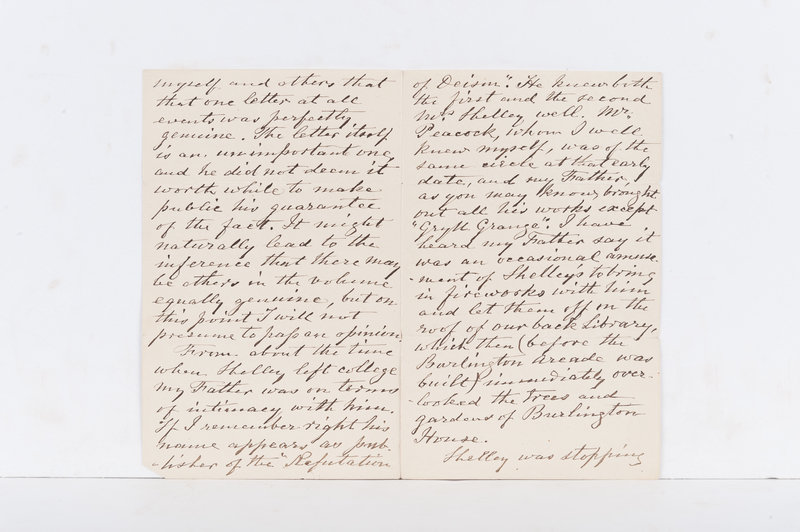 myself and others that
that one letter at all
events was perfectly
genuine. The letter itself
is an unimportant one,
and he did not deem it
worth while to make
public his guarantee
of the fact. It might
naturally lead to the
inference that there may
be others in the volume
equally genuine, but on
this point I will not
presume to pass an opinion.
From about the time
when Shelley left college
my Father was on terms
of intimacy with him.
If I remember right his
name appears as pub-
-lisher of the "Refutation
of Deism". He knew both
the first and the second
Mrs. Shelley well. Mr.
Peacock, whom I well
knew myself, was of the
same circle at that early
date, and my Father,
as you may know, brought
out all his works except
"Gryll Grange". I have
heard my Father say it
was an occasional amuse-
-ment of Shelley's to bring
in fireworks with him
and let them off on the
roof of our back Library,
which then (before the
Burlington Arcade was
built) immediately over-
-looked the trees and
gardens of Burlington
House.
Shelley was stopping